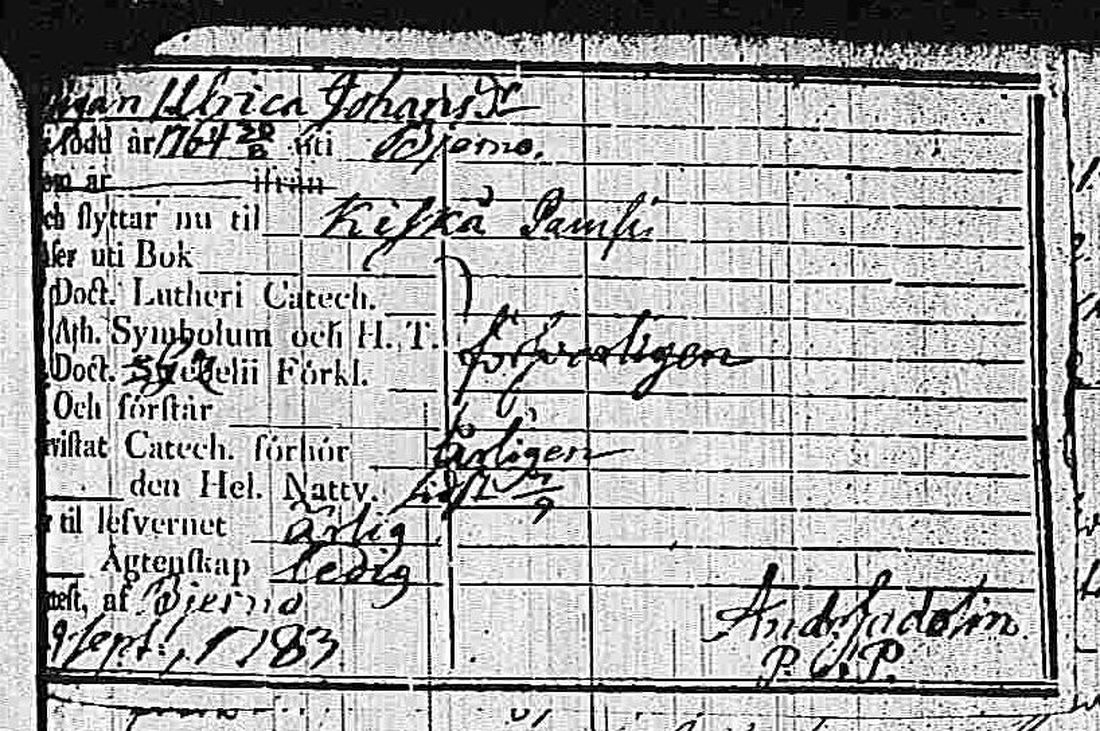 Ulrica Johans Dr
född år 1764 20/8 uti Bjerno.
om år ifrån
ch flyttar nu til Kiskå
ser uti Bok
Doct. Lutheri Catech.
Ath. Symbolum och H. T. försvarligen
Doct. elii Förkl.
Och förstår
vistat Catech. förhör årligen
den Hel. Nattv. sidst
r til lefvernet ärlig
Ägtenskap ledig
test, af Bjerno
9 Sept:, 1783 And. Gadolin.
P. P.